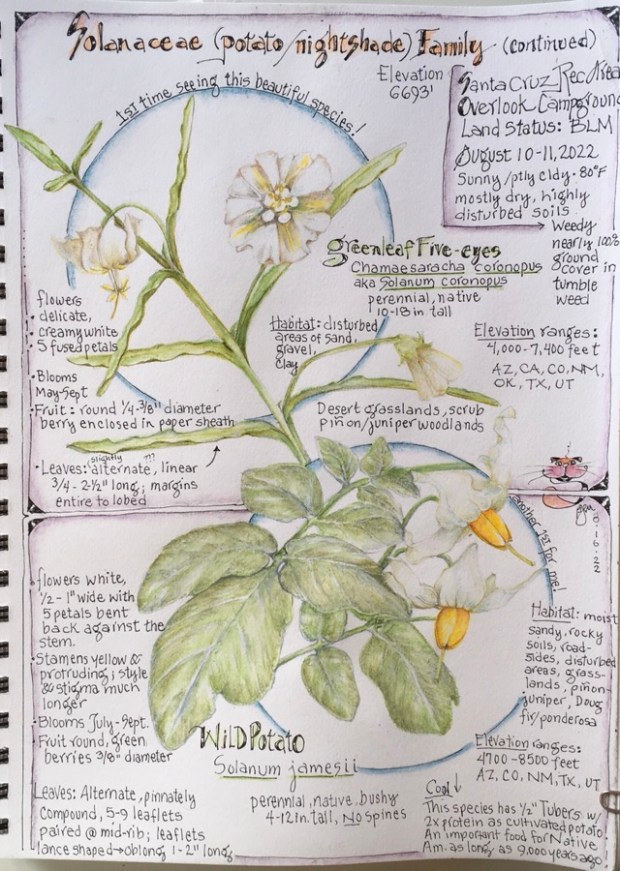 Solanaceae (potato/nightshade) Family (continued)
Elevation
6693'
Santa Cruz Rec Area
Overlook Campground
Land Status: BLM
August 10-11, 2022
Sunny/ptly cldy · 80°F
mostly dry, highly
disturbed soils
Weedy
nearly 100%
ground
cover in
tumble
weed
1st time seeing this beautiful species!
greenleaf Five-eyes
Chamaesaracha coronopus
aka Solanum coronopus
perennial, native
10-18 in tall
flowers
delicate,
creamy white
5 fused petals
• Blooms
May-Sept
• Fruit: round 1/4-3/8" diameter
berry enclosed in paper sheath
• Leaves: slightly alternate, ??? linear
3/4 - 2-1/2" long; margins
entire to lobed
Habitat: disturbed
areas of sand,
gravel,
clay
Desert grasslands, scrub
piñon/juniper woodlands
Elevation ranges:
4,000-7,400 feet
AZ, CA, CO, NM,
OK, TX, UT
10·16·22
another 1st for me!
flowers white,
1/2 - 1" wide with
5 petals bent
back against the
stem.
• Stamens yellow &
protruding; style
& stigma much
longer
• Blooms July-Sept.
Fruit round, green
berries 3/8" diameter
Wild Potato
Solanum jamesii
perennial, native, bushy
4-12 in. tall, No Spines
Leaves: Alternate, pinnately
Compound, 5-9 leaflets
paired @ mid-rib; leaflets
lance shaped → oblong 1-2" long
Habitat: moist
sandy, rocky
soils, road-
sides, disturbed
areas, grass-
lands, piñon-
juniper, Doug
fir/ponderosa
Elevation ranges:
4700-8500 feet
AZ, CO, NM, TX, UT
Cool ↓
This species has 1/2" Tubers w/
2x protein as cultivated potato
An important food for Native
Am. as long as 9,000 years ago.